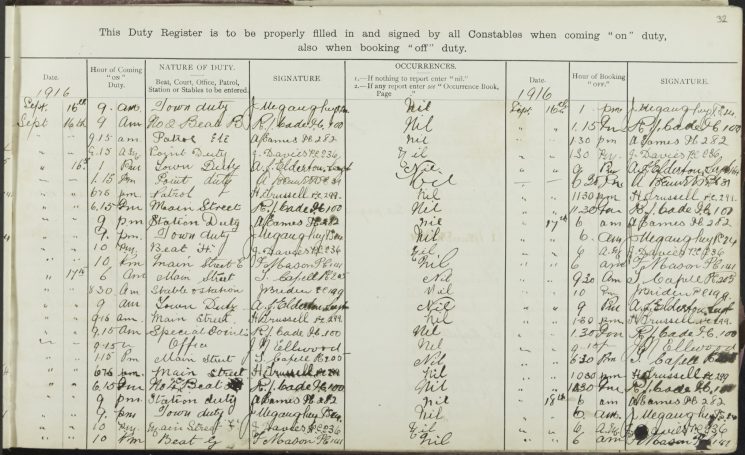 32
This Duty Register is to be properly filled in and signed by all Constables when coming "on" duty,
also when booking "off" duty.
Date. Hour of Coming "ON" Duty. NATURE OF DUTY. Beat, Court, Office, Patrol, Station or Stables to be entered. SIGNATURE. OCCURRENCES. 1.—If nothing to report enter "nil." 2.—If any report enter see "Occurrence Book, Page ." Date. Hour of Booking "OFF." SIGNATURE.
1916 1916
Sept. 16th 9 am Town duty J Megaughey Nil Sept. 16th 1 pm J Megaughey
Sept 16th 9 Am No 2 Beat B R J Cade Pc 100 Nil 1.15 Pm R J Cade Pc 100
9.15 am Patrol A James Pc 282 nil 1.30 pm A James Pc 282
Point Duty J Davies Pc 236 Nil 1.30 J Davies Pc 236
16th 1 Pm Town Duty A L Elderton Nil 9 Pm A L Elderton
1.15 Pm Point duty Nil 6 30 Pm
Patrol H Trussell Pc 299 nil 11 30 pm H Trussell Pc 299
6.15 Pm Main Street R J Cade Pc 100 Nil R J Cade Pc 100
9 pm Station Duty A James Pc 282 nil 17th 6 am A James Pc 282
9 pm Town duty J Megaughey Nil 6 am J Megaughey
10 Beat H J Davies Pc 236 Nil 6 J Davies Pc 236
10 Pm Main Street E T Mason Pc 141 Nil 6 am T Mason Pc 141
17th 6 Am Main Street S Cafell Pc 205 Nil 9 30 Am S Cafell Pc 205
8 30 Am Stable & station Nil 10
9 am Town Duty A L Elderton Nil 9 Pm A L Elderton
Main Street H Trussell Pc 299 Nil 1 30 pm H Trussell Pc 299
9.15 Am Special R J Cade Pc 100 Nil 1.30 Pm R J Cade Pc 100
9.15 Office J Ellwood Nil J Ellwood
1 15 Pm Main Street S Cafell Pc 205 Nil 6 30 Pm S Cafell
Main street H Trussell Pc 299 nil 10 30 pm H Trussell Pc 299
6.15 Pm Beat R J Cade Pc 100 Nil R J Cade Pc 100
9 pm Station duty A James Pc 282 nil 18th 6 am A James Pc 282
9 pm Town duty J Megaughey Nil 6 am J Megaughey
10 Main Street J Davies Pc 236 Nil 6 Davies Pc 236
10 Pm Beat G T Mason Pc 141 Nil 6 am T Mason Pc 141